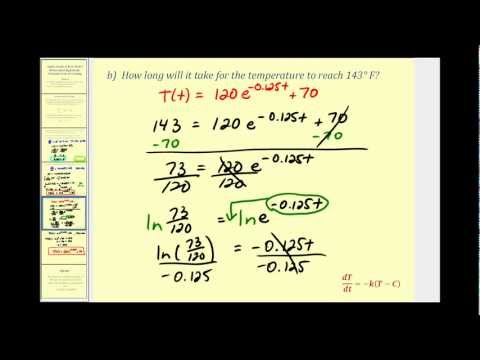 b) How long will it take for the temperature to reach 143° F?
T(t) = 120 e^-0.125t + 70
143 = 120 e^-0.125t + 70
-70 -70
73/120 = 120/120 e^-0.125t
ln 73/120 = ln e^-0.125t
ln(73/120)/-0.125 = -0.125t/-0.125
dT/dt = -k(T - C)